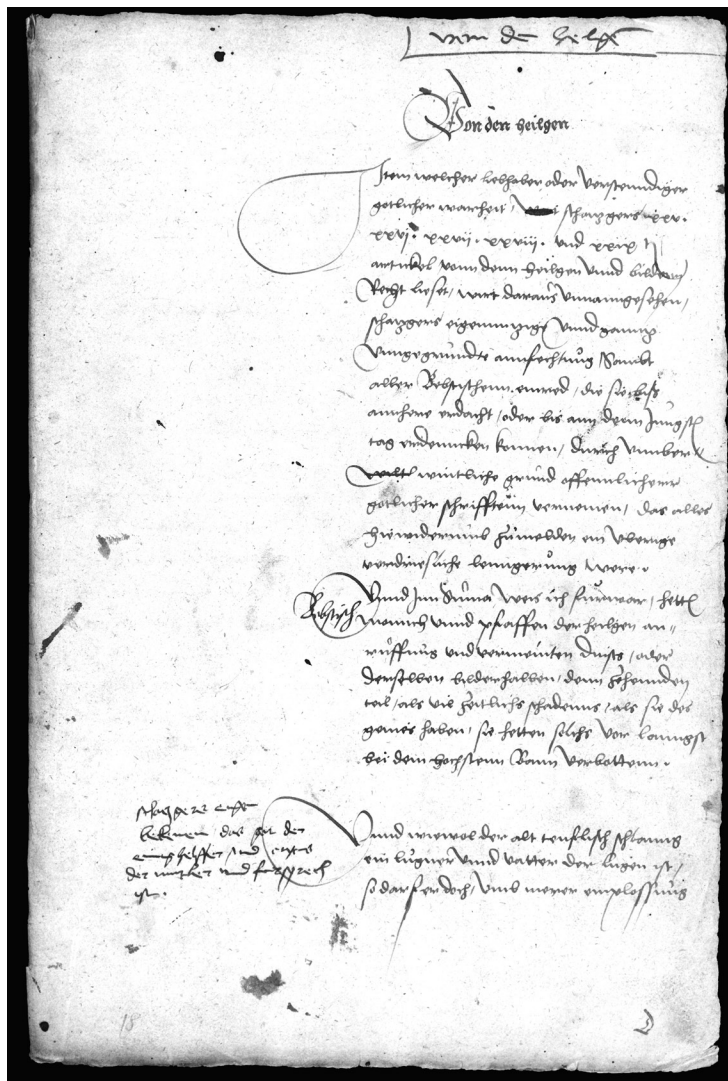 vonn den heilgen
Von den heilgen
Item welcher liebhaber oder verstenndiger
gotlicher warheit, schatzgers xxv.
xxvj. xxvii. xxviii. vnd xxix
artickel vonn denn heilgen vnnd bildern
Recht lieset, wirt daraus vnnangesehen,
schatzgers eigennutzige vnnd gantz
vnngegrundte annfechtung, Sambt
aller Bebstischenn einred, die sie biß
annhere erdacht, oder bis ann denn Jungst
tag erdenncken konnen, durch vnnber
wintliche grund offennlicherr
gotlicher schrifftenn vernemen, das alles
hiewiderumb zumelden ein vberige
verdriesliche lenngerung were.
Bebstisch
Vnnd Inn Suma weis ich furwar, hett
monnich vnnd pfaffen der heilgen an,,
ruffung vnd vermeinten dinsts, oder
derselben bilderhalben, denn zehennden
teil, als vil zeitlichs schadenns, als sie des
genies haben, sie hetten solchs vor lanngst
bei dem hochstenn Bann verbottenn.
schatzgers
bekennen das got der
einig helffer vnd cristus
der mitler vnd fursprech
ist.
Vnnd wiewol der alt teuflisch schlanng
ein lugner vnnd vatter der lugen ist,
so darf er doch, vmb merer emplossung
18